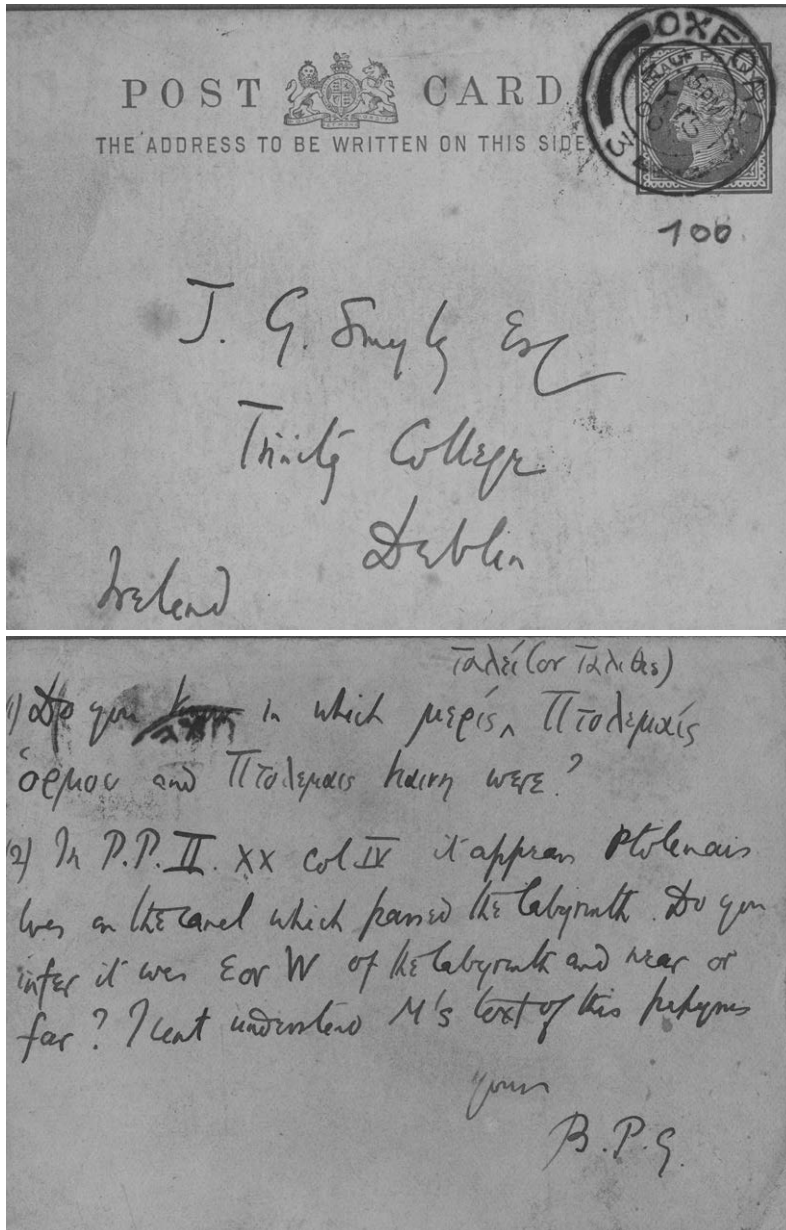 POST CARD
THE ADDRESS TO BE WRITTEN ON THIS SIDE
OXFORD
100
J. G. Smyly Esq
Trinity College
Dublin
Ireland
Ταλεί (or Ταλιθις)
1) Do you know in which μερίς ^ Πτολεμαίς
όρμου and Πτολεμαις καινη were?
(2) In P.P. II. XX col IV it appears Ptolemais
was on the canal which passed the labyrinth. Do you
infer it was E or W of the labyrinth and near or
far? I can't understand M's text of this papyrus
yours
B.P.G.